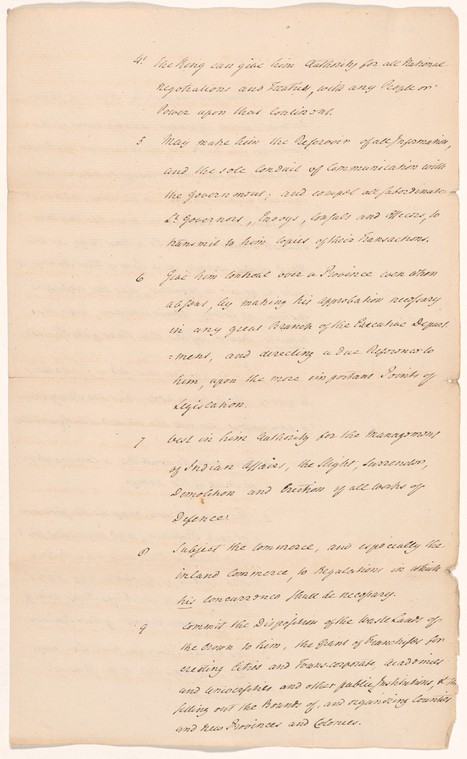 4. The King can give him Authority for all National
Negotiations and Treaties, with any People or
Power upon that Continent.
5 May make him the Referover of all Information,
and the sole conduit of Communication with
the Government; and compel all subordinate
Lt. Governors, Envoys, Consuls and Officers, to
transmit to him Copies of their Transactions.
6 Give him Controul over a Province even when
absent, by making his approbation necessary
in any great Branch of the Executive Depart
=ment, and directing a due Reference to
him, upon the more important Points of
Legislation.
7 Vest in him Authority for the Management
of Indian Affairs, the Slight, Surrender,
Demolition and Erection of all Works of
Defence.
8 Subject the Commerce, and especially the
inland Commerce, to Regulations in which
his concurrence shall be necessary.
9 Commit the Disposition of the Waste Lands of
the Crown to him, the Grant of Franchises for
erecting Cities and Towns corporate, Academies
and Universities and other public Institutions, &
filling out the of, and organizing Counties
and New Provinces and Colonies.